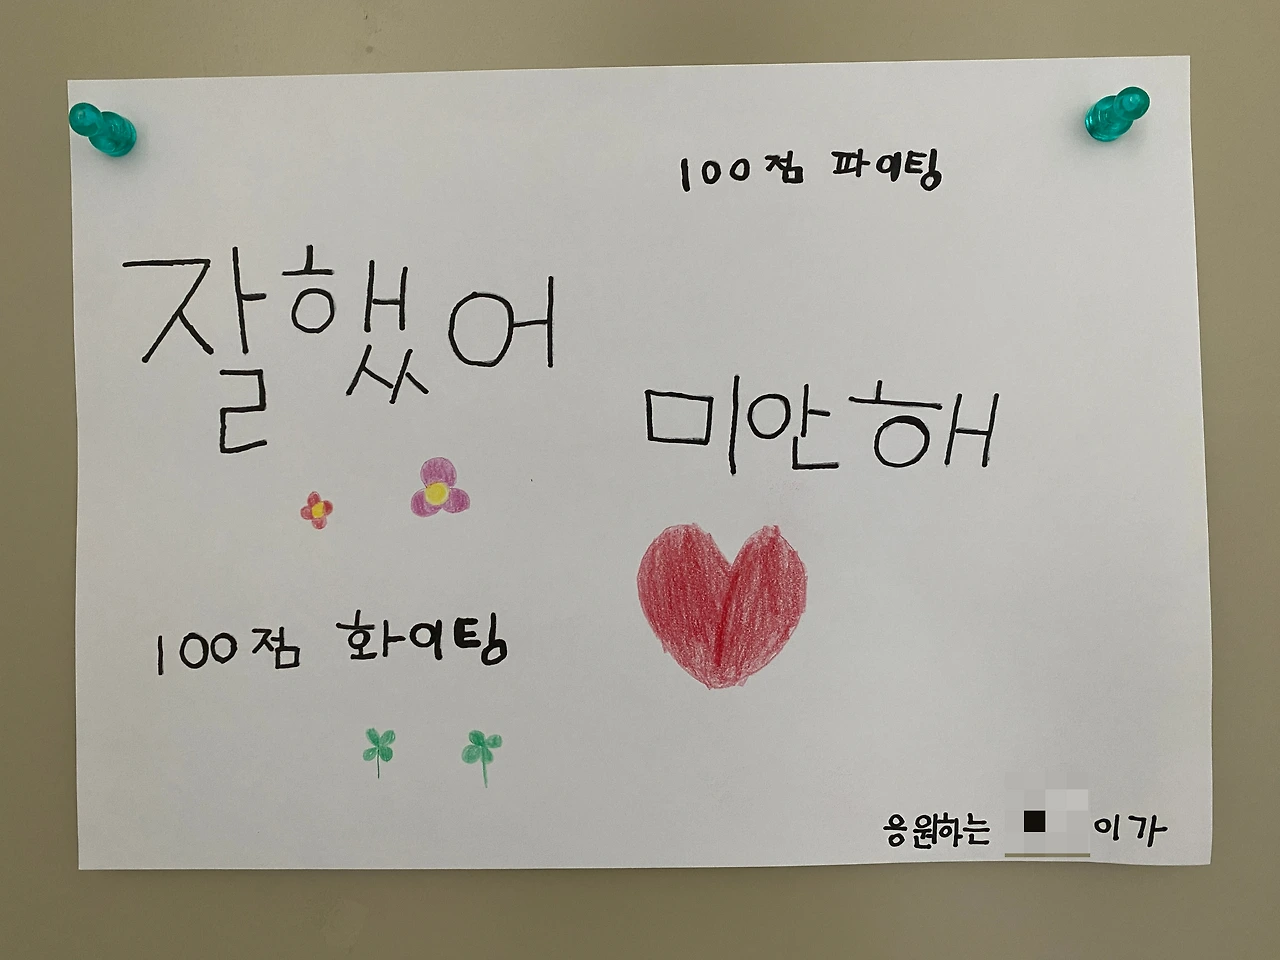 100점 파이팅
잘했어
미안해
100점 화이팅
응원하는 이가